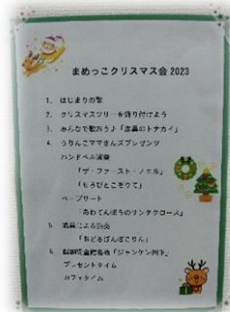 まめっこクリスマス会 2023
1. はじまりの歌
2. クリスマスツリーを飾り付けよう
3. みんなで歌おう♪「赤鼻のトナカイ」
4. うりんこママさんズプレゼンツ
ハンドベル演奏
「ザ・ファースト・ノエル」
「もろびとこぞりて」
ペープサート
「あわてんぼうのサンタクロース」
5. 職員による
「おどるぽんぽこりん」
6. 「ジャンケン列車」
プレゼントタイム
カフェタイム